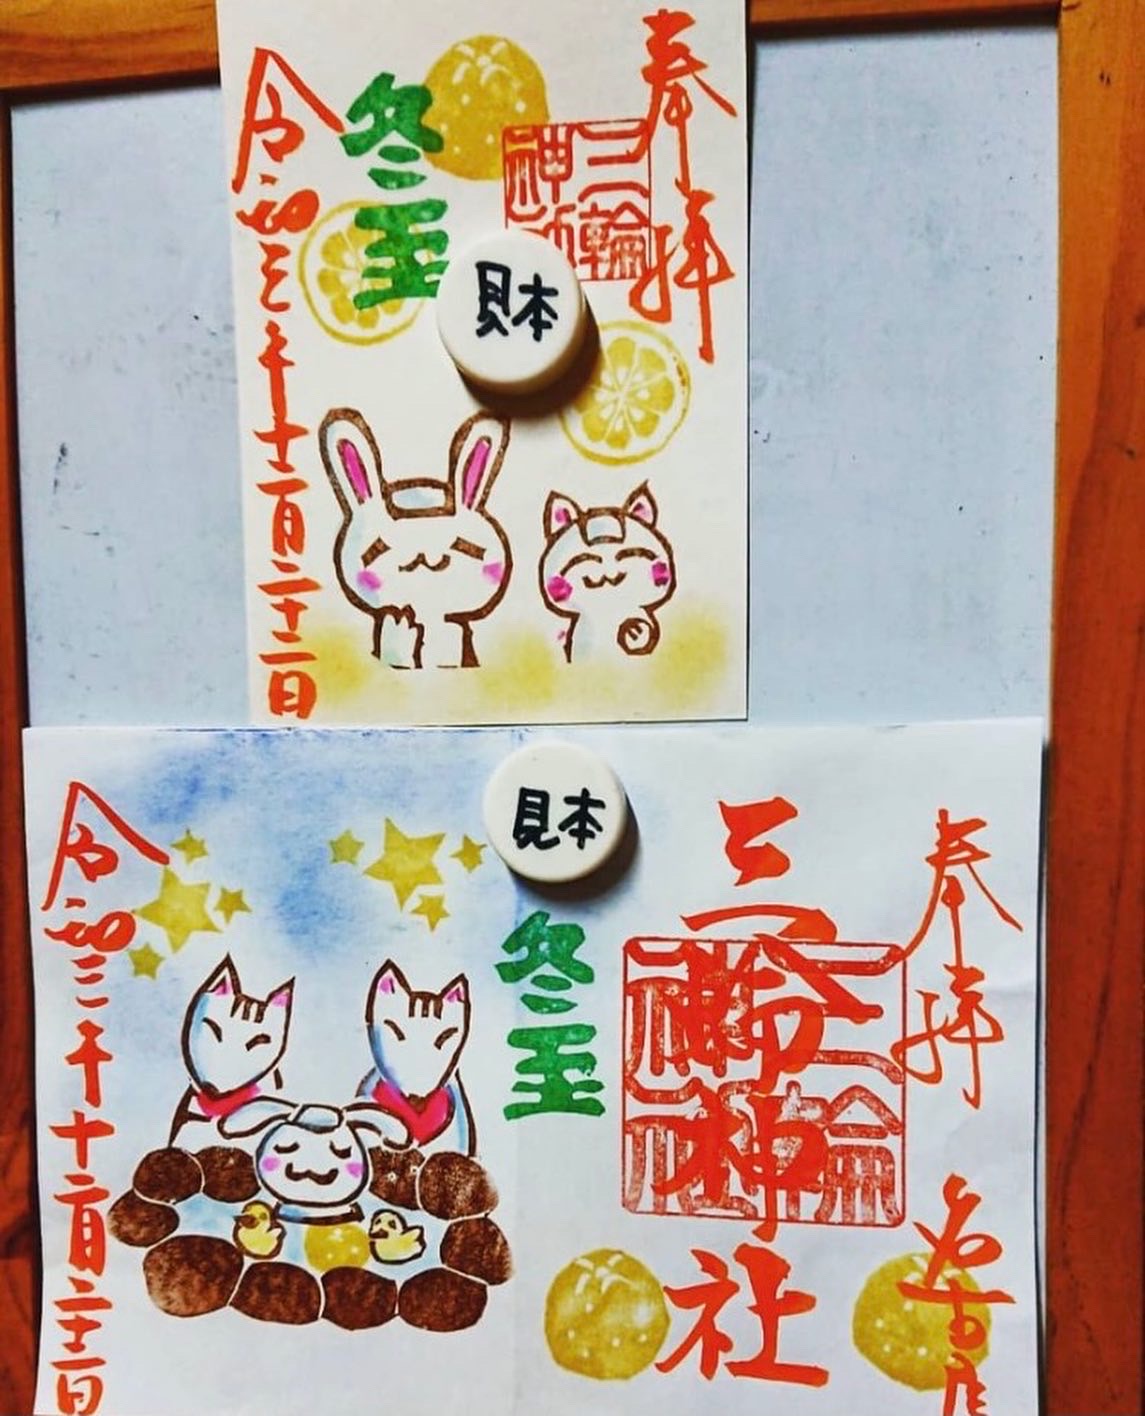 奉拝
三輪
神社
冬至
令和三年十二月二十二日
見本
見本
奉拝
名古屋
三輪神社
三輪
神社
冬至
令和三年十二月二十二日